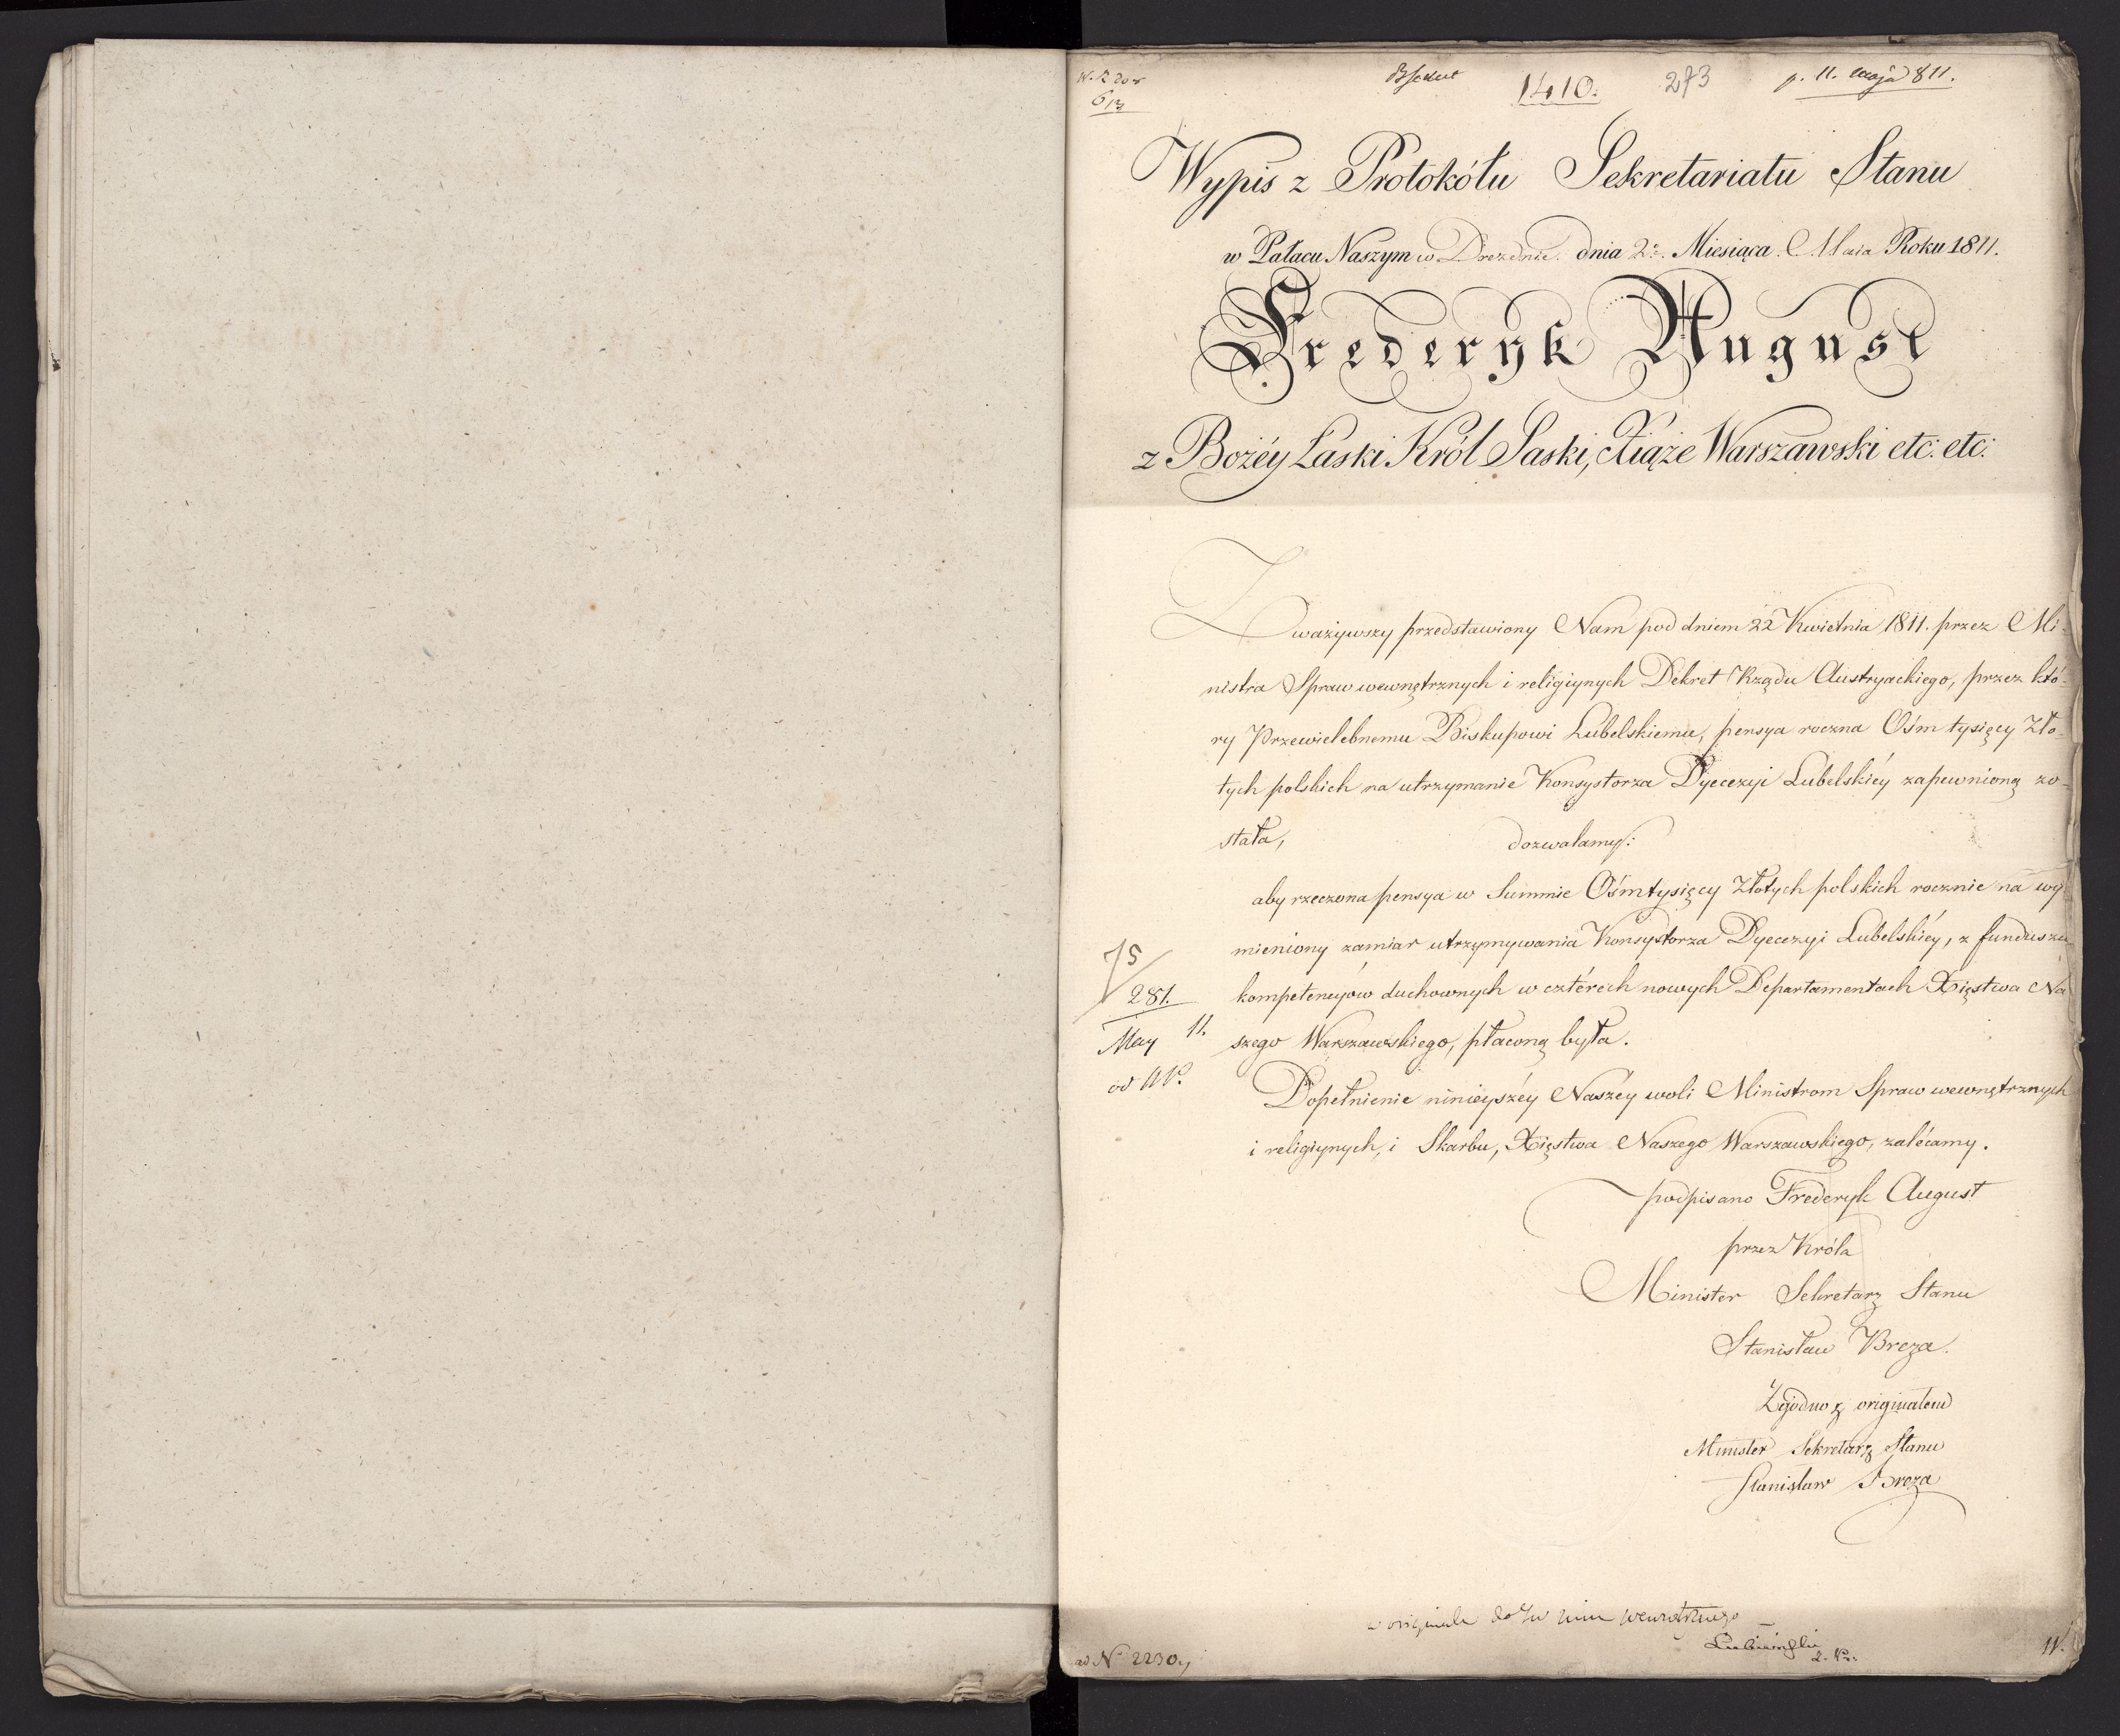 1410.
273
p. 11. maja 811.
Wypis z Protokółu Sekretariatu Stanu
w Pałacu Naszym w Dreznie. dnia 2º. Miesiąca. Maia Roku 1811.
Frederyk August
z Bożéy Łaski Król Saski, Xiąże Warszawski etc: etc:
Zważywszy przedstawiony Nam pod dniem 22 Kwietnia 1811. przez Mi-
nistra Spraw wewnętrznych i religiynych Dekret Rządu Austryackiego, przez któ-
ry Przewielebnemu Biskupowi Lubelskiemu, pensya roczna Ośm tysięcy Zło-
tych polskich na utrzymanie Konsystorza Dyecezyi Lubelskiéy zapewnioną zo-
stała,
dozwalamy:
aby rzeczona pensya w Summie Ośmtysięcy Złotych polskich rocznie na wy-
mieniony zamiar utrzymywania Konsystorza Dyecezyi Lubelskiéy, z funduszu
kompetencyów duchownych w cztérech nowych Departamentach Xięstwa Na
szego Warszawskiego, płaconą była.
75
281.
May 11.
Dopełnienie ninieyszéy Naszéy woli Ministrom Spraw wewnętrznych
i religiynych, i Skarbu, Xięstwa Naszego Warszawskiego, zalécamy.
podpisano Frederyk August
przez Króla
Minister Sekretarz Stanu
Stanisław Breza.
Zgodno z originałem
Minister Sekretarz Stanu
Stanisław Breza
w originale
Lubieński
ad N 2230
11.